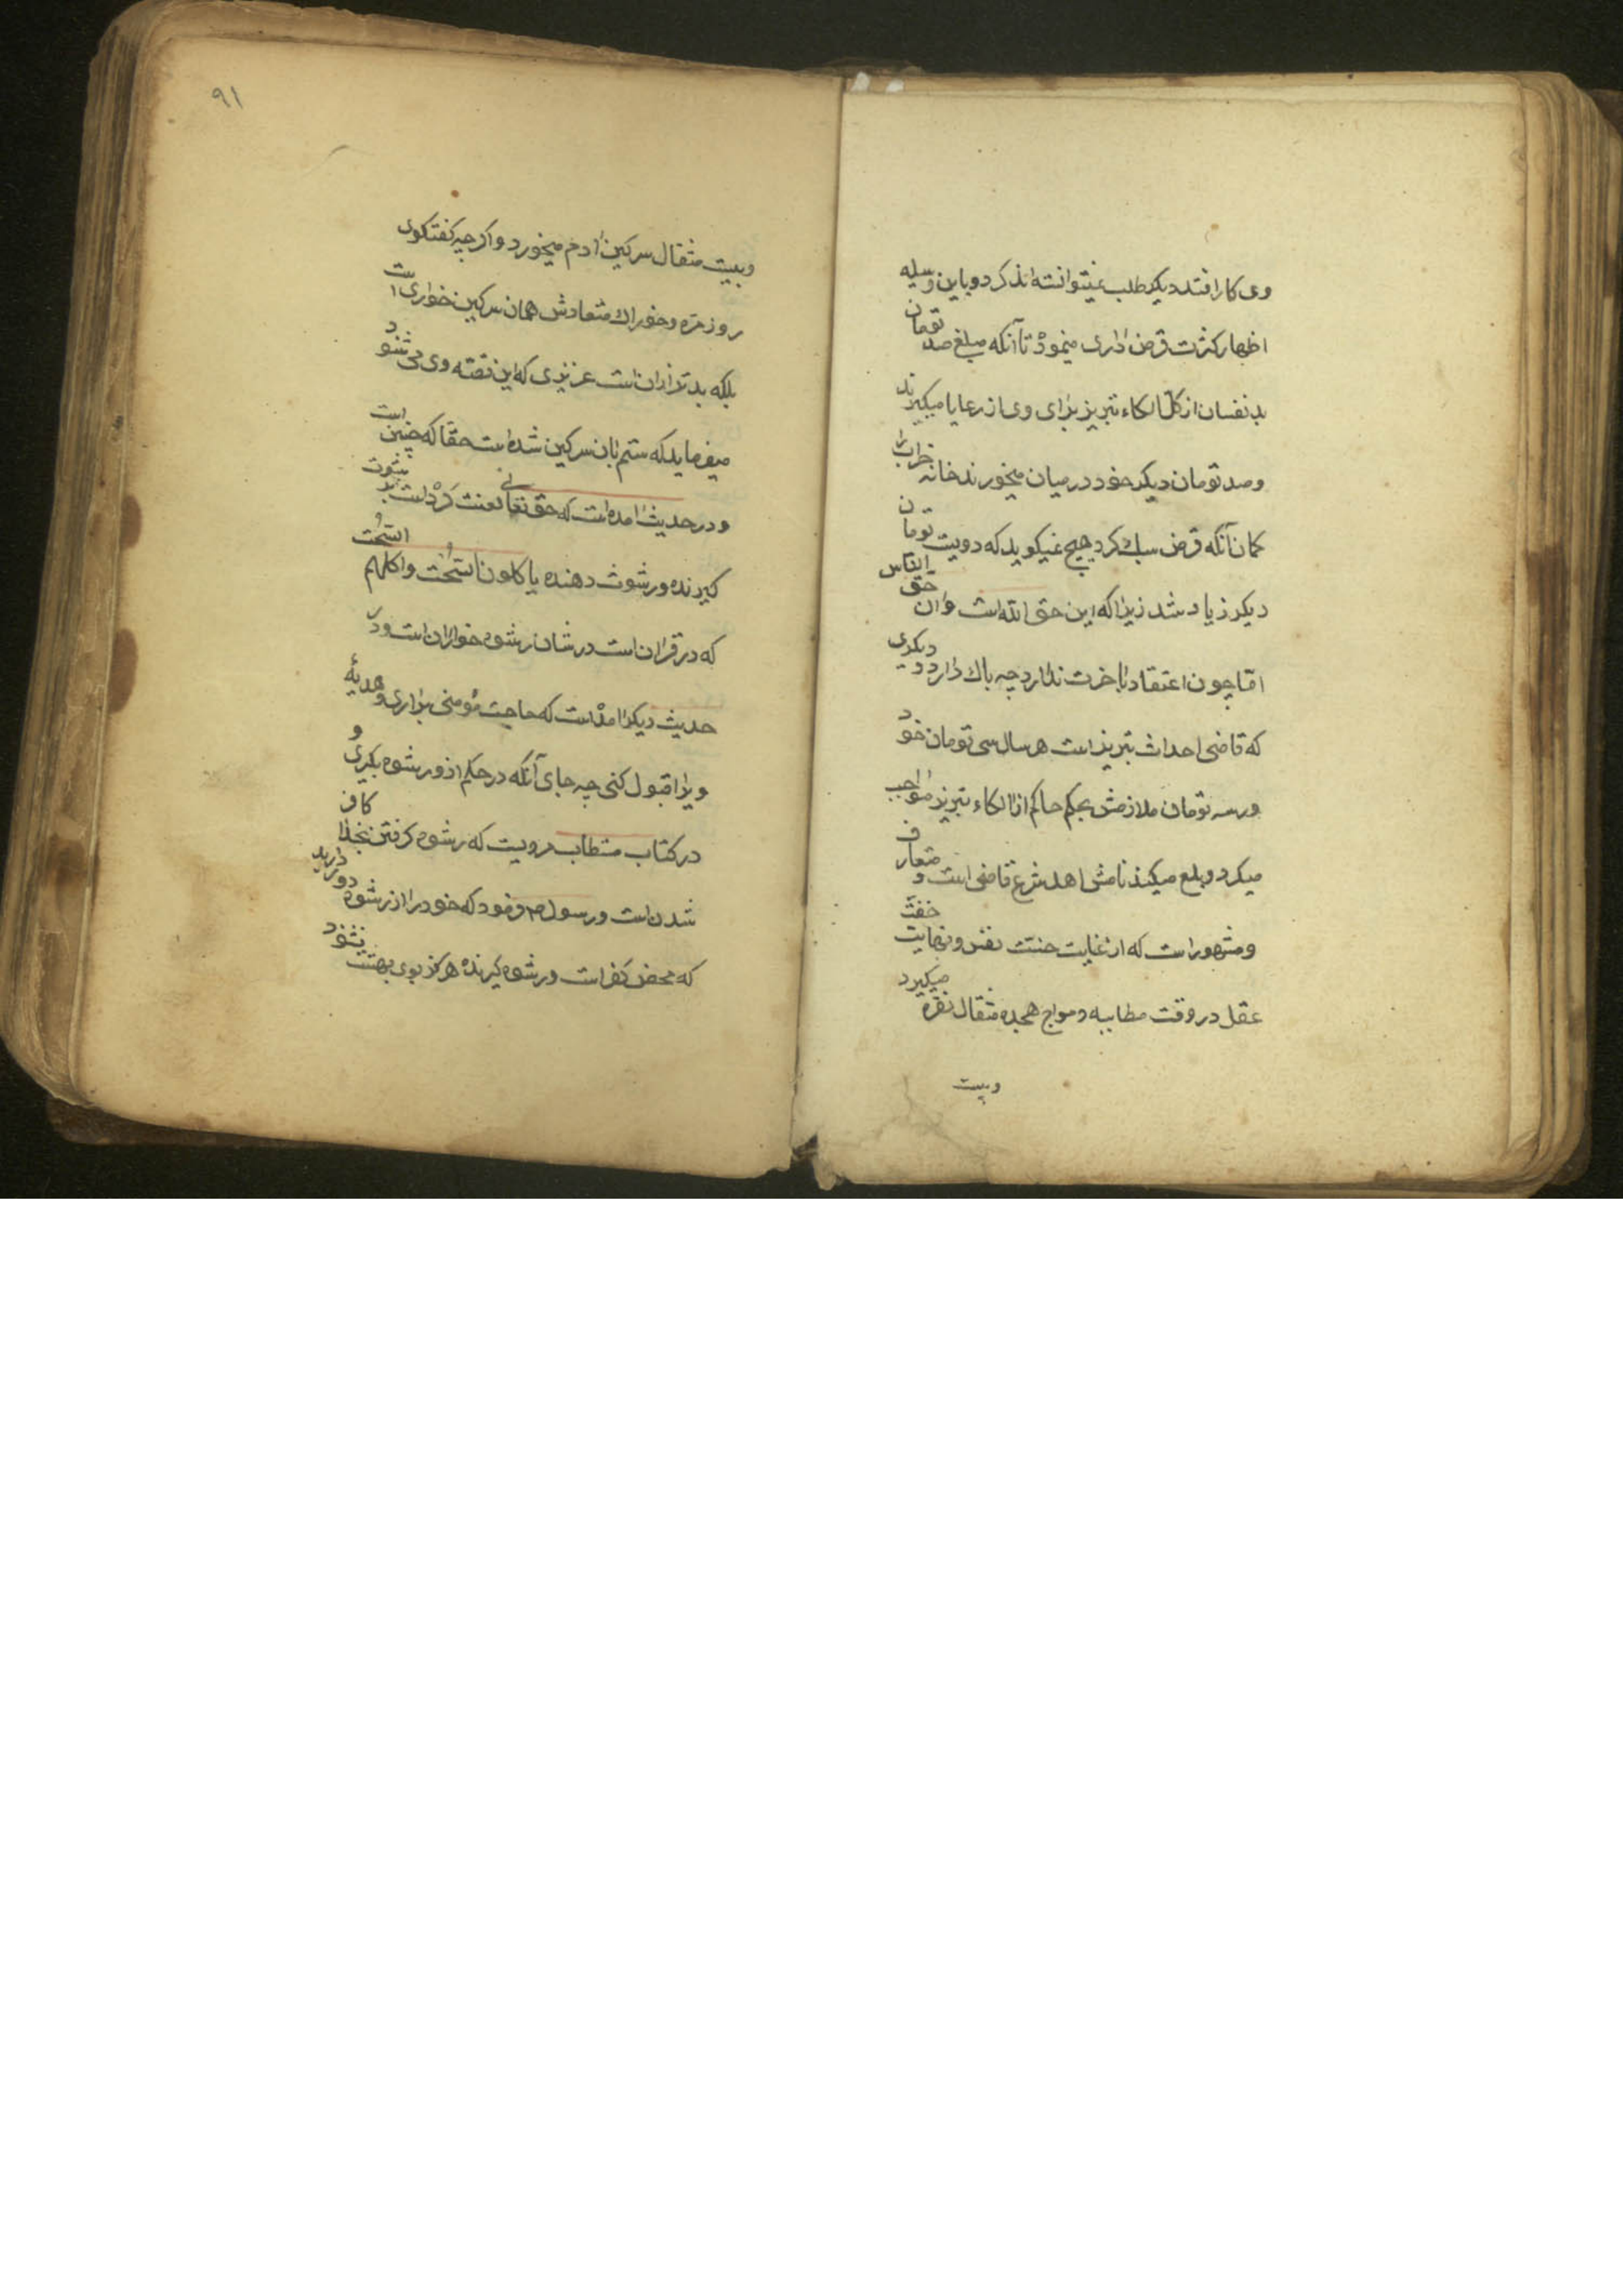 وی کار افتد دیکر طلب نمیتوانسته‌اند کرد و باین وسیله
اظهار کثرت قرض داری مینمود تا آنکه مبلغ صد تومان
بد نفسان از کل الکاء تبریز برای وی از رعایا میکیرند
و صد تومان دیکر خود در میان میخورند خانه خراب را
کمان آنکه قرض سبک کرد هیچ نمیکوید که دویست تومان
دیکر زیاد شد زیرا که این حق الله است و ان حق الناس
اما چون اعتقاد باخرت ندارد چه باک دارد دیکری
که قاضی احداث تبریز است هر سال سی تومان خود
و سه تومان ملازمش بحکم حاکم از الکاء تبریز مواجب
میکرد و بلع میکند نامش اهل شرع قاضی است و متعارف
و مشهور است که از غایت خست نفس و نهایت خفت
عقل در وقت مطایبه و مواج هجده مثقال نقره میکیرد
وبیست
۹۱
وبیست مثقال سرکین ادم میخورد واکرچه کفتکوی
روزمره وخوراک متعادش همان سرکین خواری است
بلکه بدتر از ان است عزیزی که این قصه وی می شنود
میفرماید که ستم بان سرکین شده است حقا که چنین است
و در حدیث امده است که حق تعالی لعنت کرده است بر رشوت
کیرنده و رشوت دهنده یا کلون السحت و اکلهم السحت
که در قران است در شان رشوه خواران است و در
حدیث دیکر امده است که حاجت مؤمنی براری و هدیهٔ
ویرا قبول کنی چه جای آنکه در حکم از و رشوه بکیری و
در کتاب مستطاب مرویست که رشوه کرفتن بخدا کافر
شدن است و رسول ص فرمود که خود را از رشوه دور دارید
که محض کفر است و رشوه کیرنده هرکز بوی بهشت نشنود